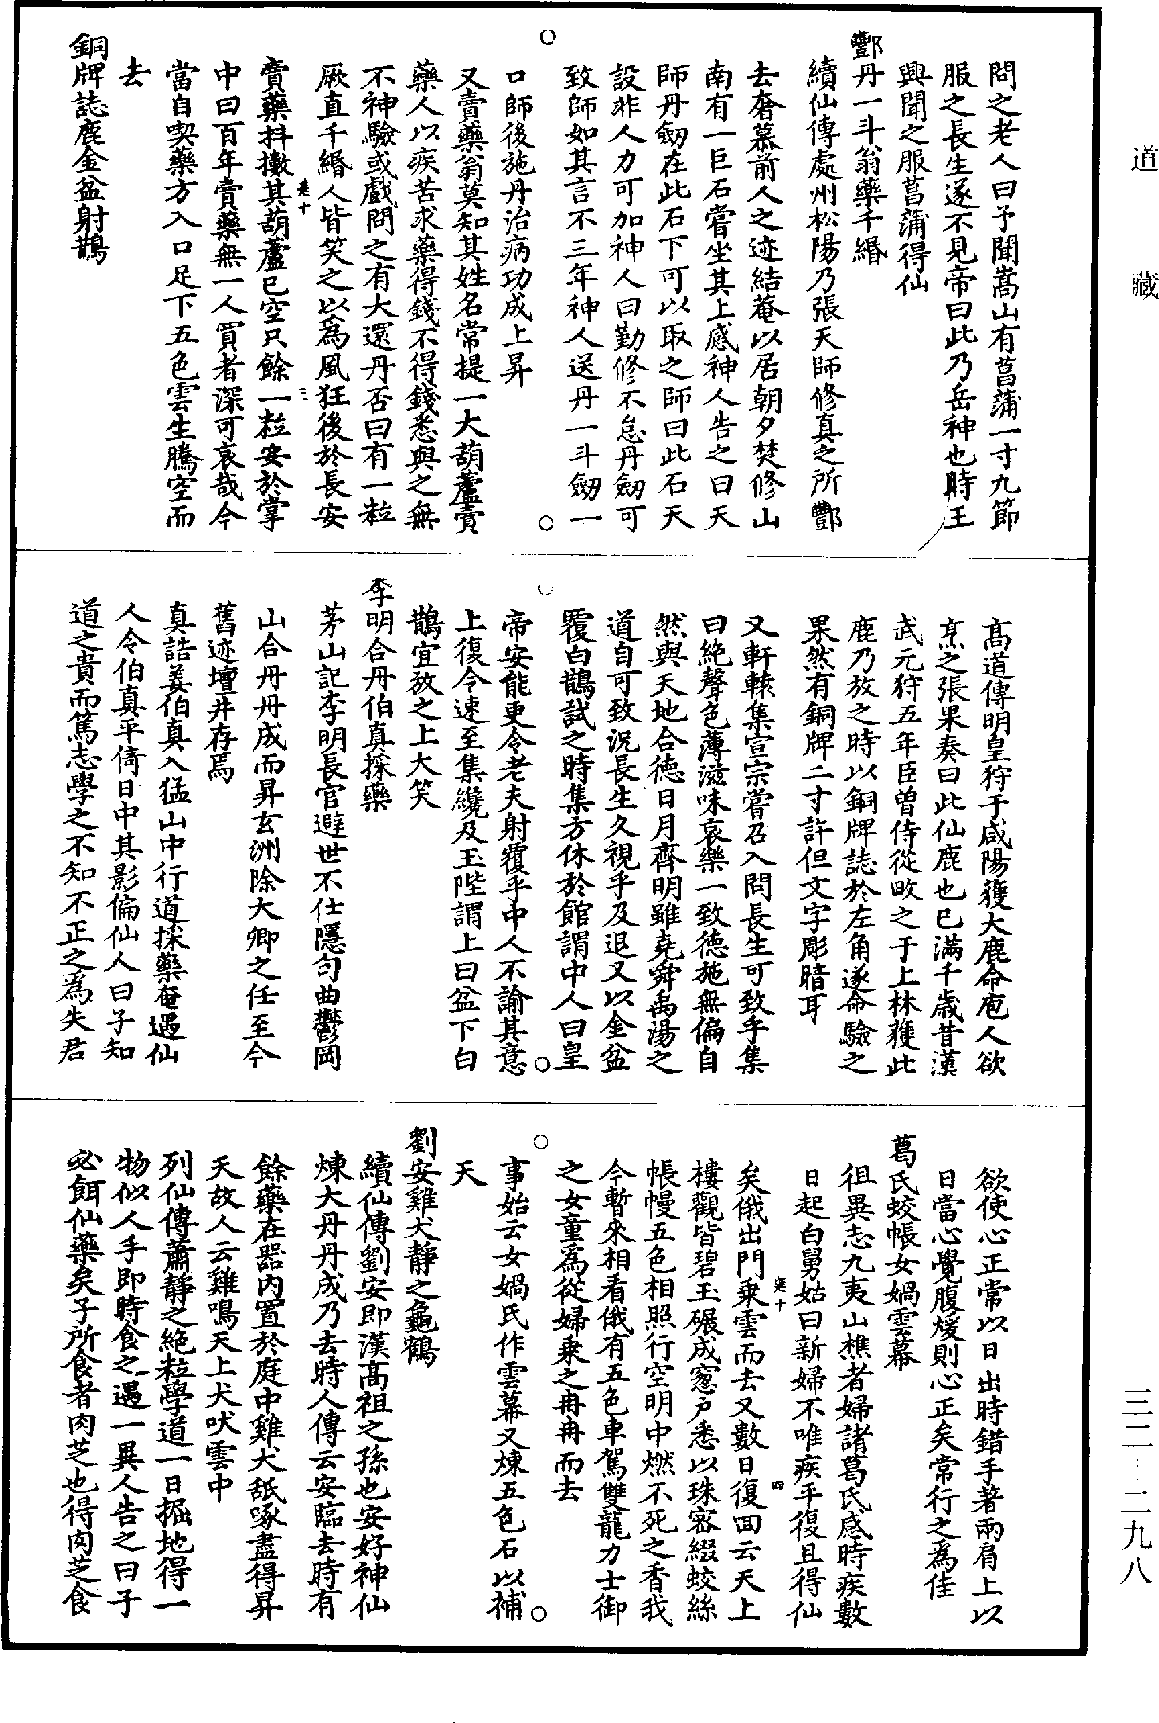 道藏
問之老人曰予聞嵩山有菖蒲一寸九節
服之長生遂不見帝曰此乃岳神也時王
興聞之服菖蒲得仙
酆丹一斗翁藥千緡
續仙傳處州松陽乃張天師修真之所酆
去奢慕前人之迹結菴以居朝夕焚修山
南有一巨石嘗坐其上感神人告之曰天
師丹劒在此石下可以取之師曰此石天
設非人力可加神人曰勤修不怠丹劒可
致師如其言不三年神人送丹一斗劒一
口師後施丹治病功成上昇
又賣藥翁莫知其姓名常提一大葫蘆賣
藥人以疾苦求藥得錢不得錢悉與之無
不神驗或戲問之有大還丹否曰有一粒
厥直千緡人皆笑之以為風狂後於長安
賣藥抖擻其葫蘆已空只餘一粒安於掌
中曰百年賣藥無一人買者深可哀哉今
當自喫藥方入口足下五色雲生騰空而
去
銅牌誌鹿金盆射鵲
高道傳明皇狩于咸陽獲大鹿命庖人欲
烹之張果奏曰此仙鹿也已滿千歲昔漢
武元狩五年臣曾侍從畋之于上林獲此
鹿乃放之時以銅牌誌於左角遂命驗之
果然有銅牌二寸許但文字彫暗耳
又軒轅集宣宗嘗召入問長生可致乎集
曰絶聲色薄滋味哀樂一致德施無偏自
然與天地合德日月齊明雖堯舜禹湯之
道自可致況長生久視乎及退又以金盆
覆白鵲試之時集方休於館謂中人曰皇
帝安能更令老夫射覆乎中人不諭其意
上復令速至集纔及玉陛謂上曰盆下白
鵲宜放之上大笑
李明合丹伯真採藥
茅山記李明長官避世不仕隱句曲鬱岡
山合丹丹成而昇玄洲除大卿之任至今
舊迹壇井存焉
真誥姜伯真入猛山中行道採藥奄遇仙
人令伯真平倚日中其影偏仙人曰子知
道之貴而篤志學之不知不正之為失君
欲使心正常以日出時錯手著兩肩上以
日當心覺腹煖則心正矣常行之為佳
葛氏蛟帳女媧雲幕
徂異志九夷山樵者婦諸葛氏感時疾數
日起白舅姑曰新婦不唯疾平復且得仙
矣俄出門乗雲而去又數日復回云天上
樓觀皆碧玉碾成窻戶悉以珠窓綴蛟絲
帳幔五色相照行空明中燃不死之香我
今暫來相看俄有五色車駕雙龍力士御
之女童為從婦乗之冉冉而去
事始云女媧氏作雲幕又煉五色石以補
天
劉安雞犬靜之龜鶴
續仙傳劉安即漢高祖之孫也安好神仙
煉大丹丹成乃去時人傳云安臨去時有
餘藥在器内置於庭中雞犬舐啄盡得昇
天故人云雞鳴天上犬吠雲中
列仙傳蕭靜之絶粒學道一日掘地得一
物似人手即時食之遇一異人告之曰子
必餌仙藥矣子所食者肉芝也得肉芝食
三二—二九八